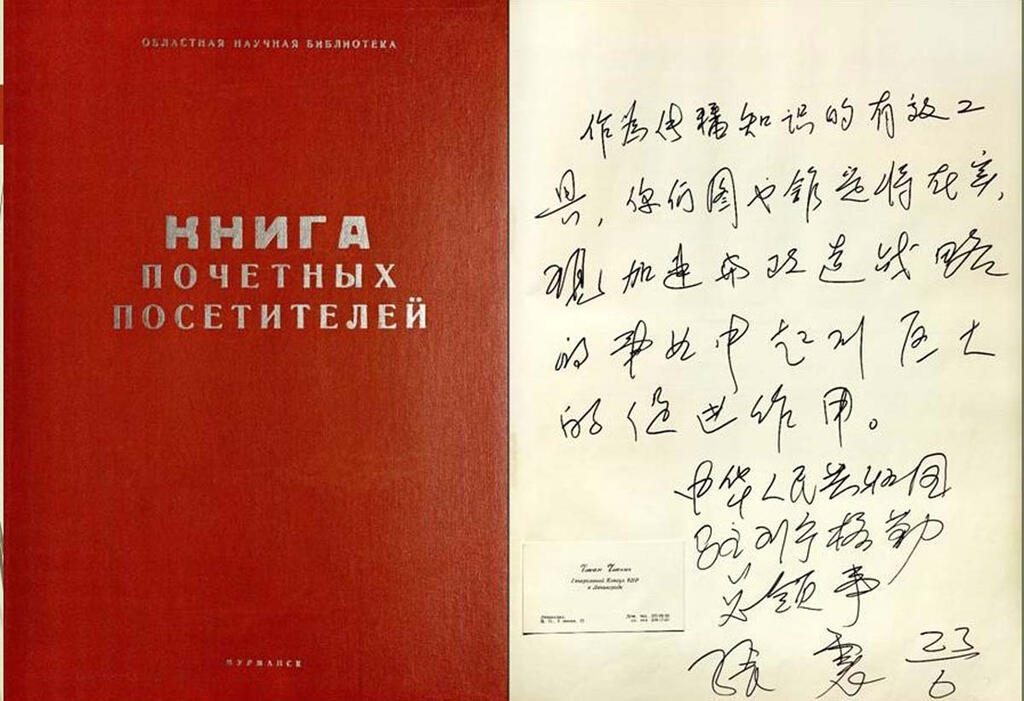 ОБЛАСТНАЯ НАУЧНАЯ БИБЛИОТЕКА
КНИГА
ПОЧЕТНЫХ
ПОСЕТИТЕЛЕЙ
МУРМАНСК
作为传播知识的有效工
具,你们图书馆定将在实
现加速与改造战略
的事业中起到巨大
的促进作用。
中华人民共和国
驻列宁格勒
总领事
张震 23/6
Генеральный Консул КНР
в Ленинграде